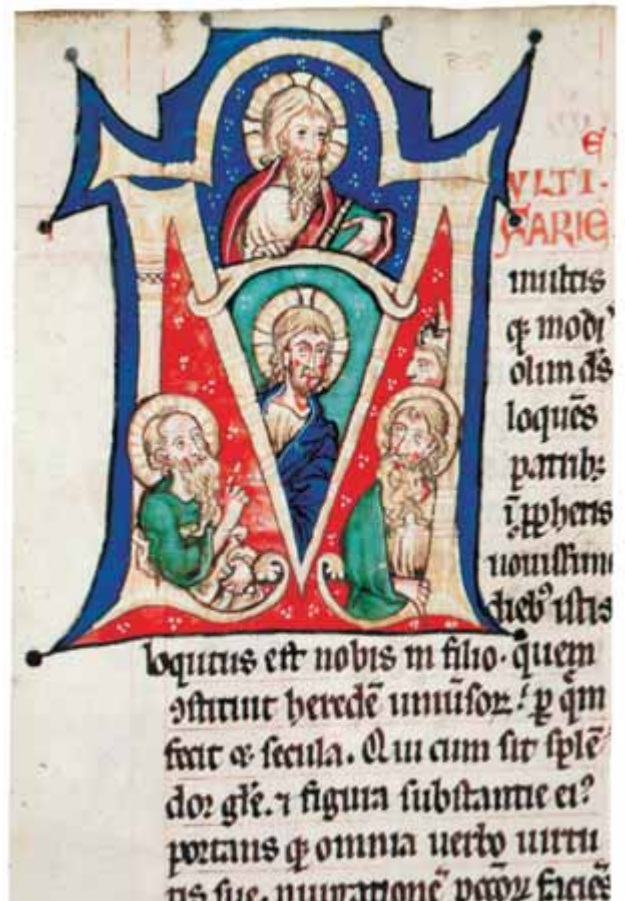 M
E
VLTI·
FARIE
multis
q; modis
olim d̅s
loquēs
patrib;
ī ꝓphetis
nouissime
dieb⁹ istis
locutus est nobis in filio· quem
ↄstituit heredē uniūsoꝝ! ꝑ qm̄
fecit ⁊ secula. Qui cum sit splē
dor gl̄e. ⁊ figura substantie ei⁹
portans q; omnia uerbo uirtu
tis sue. purgationē pcc̄oꝝ faciēs